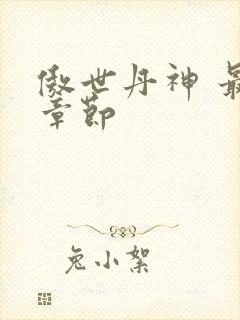 傲世丹神 最
章節
兔小絮